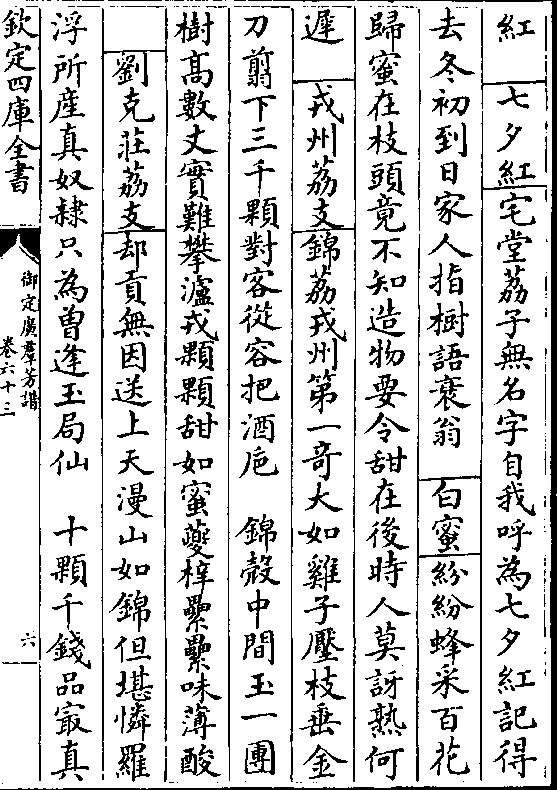 紅　七夕紅宅堂荔子無名字自我呼為七夕紅記得
去冬初到日家人指樹語衰翁　白蜜紛紛蜂采百花
歸蜜在枝頭竟不知造物要令甜在後時人莫訝熟何
遲　戎州荔支錦荔戎州第一奇大如雞子壓枝垂金
刀翦下三千顆對客從容把酒巵　錦殼中間玉一團
樹髙數丈實難攀瀘戎顆顆甜如蜜夔梓纍纍味薄酸
劉克莊荔支却貢無因送上天漫山如錦但堪憐羅
浮所産真奴隸只為曽逢玉局仙　十顆千錢品㝡真
欽定四庫全書
御定廣羣芳譜
卷六十三
六